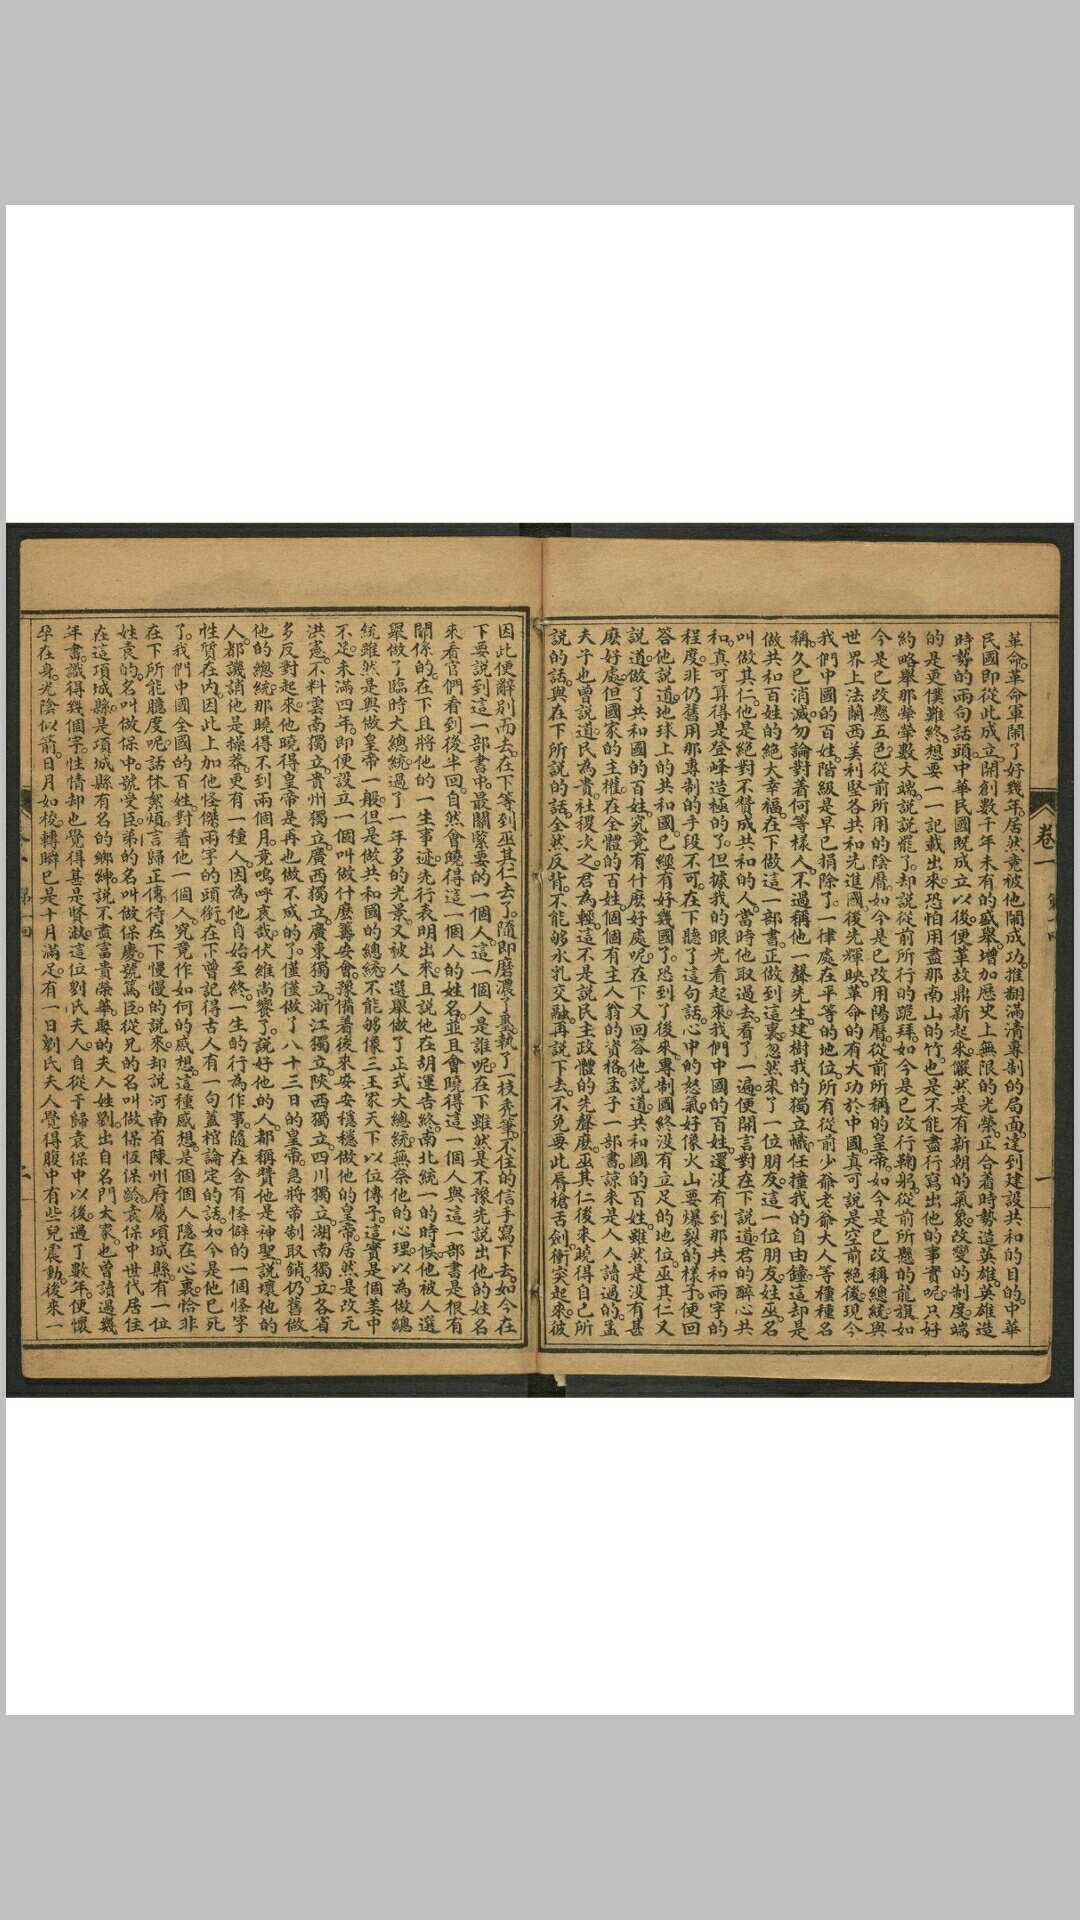 革命。革命軍鬧了好幾年。居然竟被他鬧成功。推翻滿清專制的局面。達到建設共和的目的。中華
民國即從此成立。開創數千年未有的盛舉。增加歷史上無限的光榮。正合着時勢造英雄。英雄造
時勢的兩句話頭。中華民國既成立以後。便革故鼎新起來。儼然是有新朝的氣象。改變的制度。端
的是更僕難終。想要一一記載出來。恐怕用盡那南山的竹。也是不能盡行寫出他的事實呢。只好
約略舉那犖犖數大端。說說罷了。却說從前所行的跪拜。如今是已改行鞠躬。從前所懸的龍旗。如
今是已改懸五色。從前所用的陰曆。如今是已改用陽曆。從前所稱的皇帝。如今是已改稱總統。與
世界上法蘭西美利堅各共和先進國後先輝映。革命的有大功於中國。真可說是空前絕後。現今
我們中國的百姓。階級是早已捐除了。一律處在平等的地位。所有從前少爺老爺大人等種種名
稱。久已消滅。勿論對着何等樣人。不過稱他一聲先生。建樹我的獨立幟。任撞我的自由鐘。這却是
做共和百姓的絕大幸福。在下做這一部書。正做到這裏。忽然來了一位朋友。這一位朋友。姓巫。名
叫做其仁。他是絕對不贊成共和的人。當時他取過去看了一遍。便開言對在下說道。君的醉心共
和。真可算得是登峰造極的了。但據我的眼光看起來。我們中國的百姓。還沒有到那共和兩字的
程度。非仍舊用那專制的手段不可。在下聽了這句話。心中的怒氣。好像火山要爆裂的樣子。便回
答他說道。地球上的共和國。已經有好幾國了。恐到了後來。專制國終沒有立足的地位。巫其仁又
說道。做了共和國的百姓。究竟有什麽好處呢。在下又回答他說道。共和國的百姓。雖然是沒有甚
麽好處。但國家的主權。在全體的百姓。個個有主人翁的資格。孟子一部書。諒來是人人讀過的。孟
夫子也曾說道。民為貴。社稷次之。君為輕。這不是說民主政體的先聲麽。巫其仁後來曉得自己所
說的話。與在下所說的話。全然反背。不能够水乳交融。再說下去。不免要此唇槍舌劍。衝突起來。彼
卷一
一
因此便辭別而去。在下等到巫其仁去了。隨即磨濃了墨。執了一枝禿筆。不住的信手寫下去。如今在
下要說到這一部書中。最關緊要的一個人。這一個人是誰呢。在下雖然是不豫先說出他的姓名
來。看官們看到後半回。自然會曉得這一個人的姓名。並且會曉得這一個人與這一部書。是很有
關係的。在下且將他的一生事迹。先行表明出來。且說他在胡運告終。南北統一的時候。他被人選
舉做了臨時大總統。過了一年多的光景。又被人選舉做了正式大總統。無奈他的心理。以為做總
統雖然是與做皇帝一般。但是做共和國的總統。不能够像三王家天下。以位傳子。這實是個美中
不足。未滿四年。即便設立一個叫做什麽籌安會。豫備着後來安安穩穩做他的皇帝。居然是改元
洪憲。不料雲南獨立。貴州獨立。廣西獨立。廣東獨立。浙江獨立。陝西獨立。四川獨立。湖南獨立。各省
多反對起來。他曉得皇帝是再也做不成的了。僅僅做了八十三日的皇帝。急將帝制取銷。仍舊做
他的總統。那曉得不到兩個月。竟嗚呼哀哉。伏維尚饗了。說好他的人。都稱贊他是神聖。說壞他的
人。都譏誚他是操莽。更有一種人。因為他自始至終。一生的行為作事。隨在含有怪僻的一個怪字
性質在內。因此上加他怪傑兩字的頭銜。在下曾記得古人有一句蓋棺論定的話。如今是他已死
了。我們中國全國的百姓。對着他一個人。究竟作如何的感想。這種感想。是個個人隱在心裏。恰非
在下所能臆度呢。話休絮煩。言歸正傳。待在下慢慢的說來。却說河南省陳州府屬項城縣。有一位
姓袁的。名叫做保中。號受臣。弟的名叫做保慶。號篤臣。從兄的名叫做保恆保齡。袁保中世代居住
在這項城縣。是項城縣有名的鄉紳。說不盡富貴榮華。娶的夫人姓劉。出自名門大家。也曾讀過幾
年書。識得幾個字。性情却也覺得甚是賢淑。這位劉氏夫人。自從于歸袁保中以後。過了數年。便懷
孕在身。光陰似箭。日月如梭。轉瞬已是十月滿足。有一日劉氏夫人。覺得腹中有些兒震動。後來一